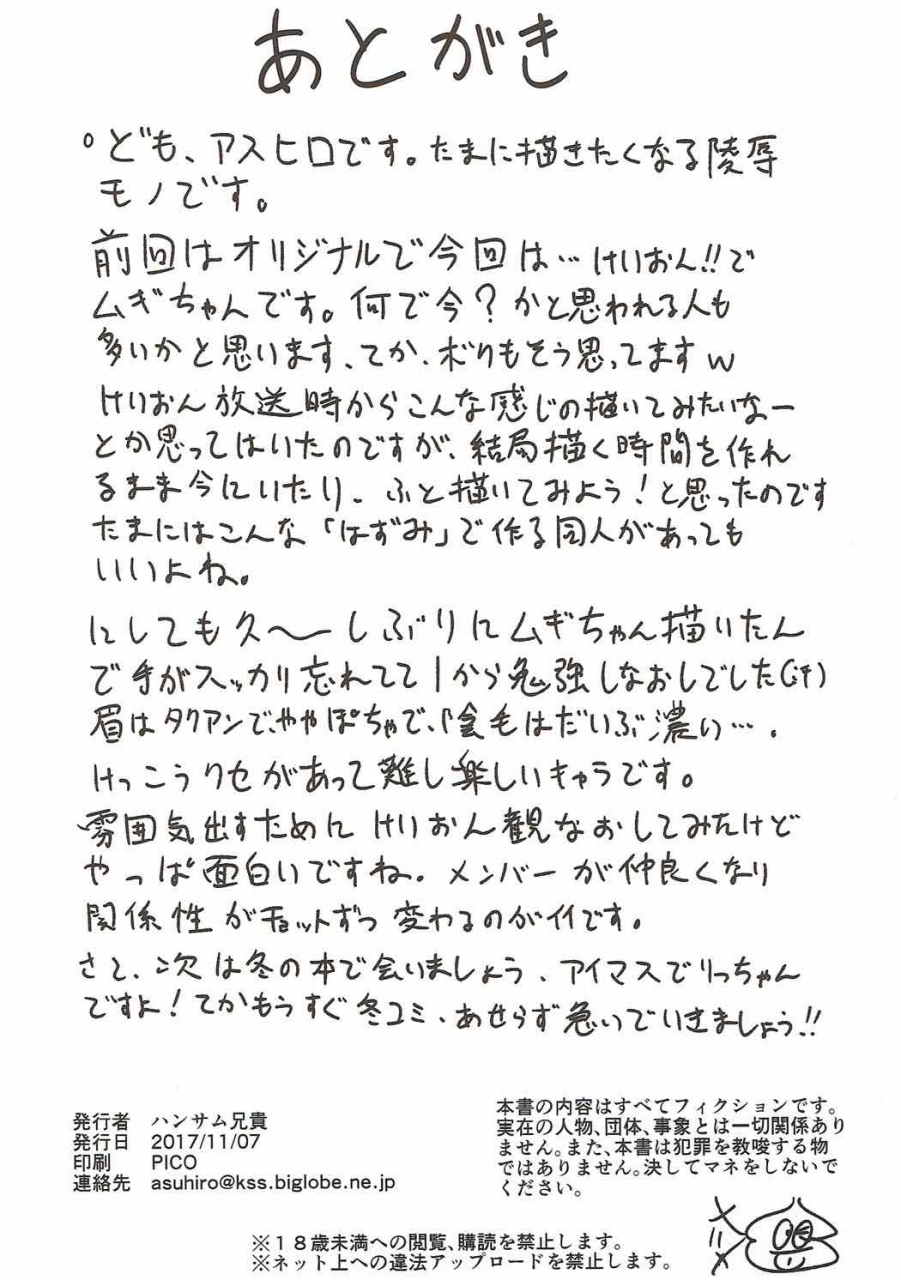 あとがき
°ども、アスヒロです。たまに描きたくなる陵辱
モノです。
前回はオリジナルで今回は…けいおん!!で
ムギちゃんです。何で今?かと思われる人も
多いかと思います、てか、ボクもそう思ってますw
けいおん放送時からこんな感じの描いてみたいなー
とか思ってはいたのですが、結局描く時間を作れ
るまま今にいたり、ふと描いてみよう!と思ったのです
たまにはこんな「はずみ」で作る同人があっても
いいよね。
にしても久〜しぶりにムギちゃん描いたん
で手がスッカリ忘れてて1から勉強しなおしでした(汗)
眉はタクアンで、ややぽちゃで、陰毛はだいぶ濃い…。
けっこうクセがあって難し楽しいキャラです。
雰囲気出すために けいおん観なおしてみたけど
やっぱ面白いですね。メンバーが仲良くなり
関係性がチョットずつ変わるのがイイです。
さて、次は冬の本で会いましょう、アイマスでりっちゃん
ですよ!てかもうすぐ冬コミ、あせらず急いでいきましょう!!
発行者 ハンサム兄貴
発行日 2017/11/07
印刷 PICO
連絡先 asuhiro@kss.biglobe.ne.jp
本書の内容はすべてフィクションです。
実在の人物、団体、事象とは一切関係あり
ません。また、本書は犯罪を教唆する物
ではありません。決してマネをしないで
ください。
※18歳未満への閲覧、購読を禁止します。
※ネット上への違法アップロードを禁止します。